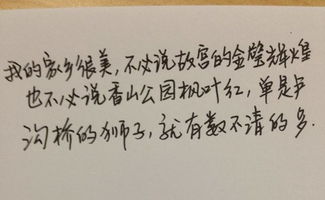 我的家乡很美,不必说故宫的金壁辉煌
也不必说香山公园枫叶红,单是卢
沟桥的狮子,就有数不清的多.